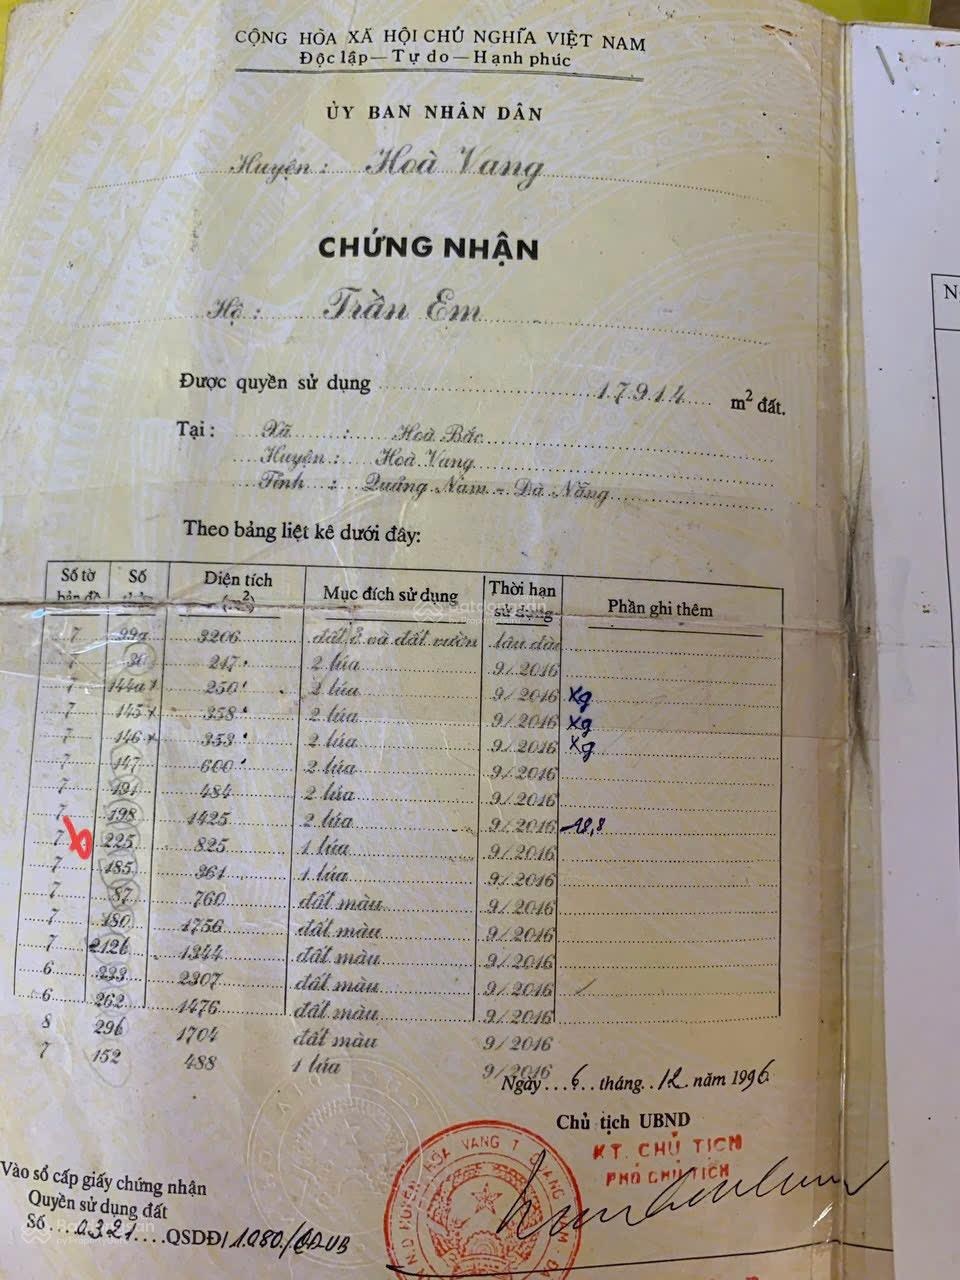 CỘNG HÒA XÃ HỘI CHỦ NGHĨA VIỆT NAM
Độc lập—Tự do—Hạnh phúc
ỦY BAN NHÂN DÂN
Huyện: Hoà Vang
CHỨNG NHẬN
Hộ: Trần Em
Được quyền sử dụng 17914 m² đất.
Tại: Xã : Hoà Bắc
Huyện: Hoà Vang
Tỉnh : Quảng Nam - Đà Nẵng
Theo bảng liệt kê dưới đây:
Số tờ Số Diện tích Mục đích sử dụng Thời hạn sử dụng Phần ghi thêm
7 99a 3206 đất ở và đất vườn lâu dài
7 217 2 lúa 9/2016
7 144a x 250 2 lúa 9/2016 Xg
7 145 x 358 2 lúa 9/2016 Xg
7 146 x 353 2 lúa 9/2016 Xg
7 147 600 2 lúa 9/2016
7 191 484 2 lúa 9/2016
7 198 1425 2 lúa 9/2016 18,8
7 225 825 1 lúa 9/2016
7 185 361 1 lúa 9/2016
7 87 760 đất màu 9/2016
7 180 1756 đất màu 9/2016
7 2126 1344 đất màu 9/2016
6 333 2307 đất màu 9/2016
6 262 1476 đất màu 9/2016
8 296 1704 đất màu 9/2016
7 152 488 1 lúa 9/2016
Ngày 6 tháng 12 năm 1996
Chủ tịch UBND
KT. CHỦ TỊCH
PHÓ CHỦ TỊCH
Vào sổ cấp giấy chứng nhận
Quyền sử dụng đất
Số 0321 QSDĐ/1080/QĐ-UB